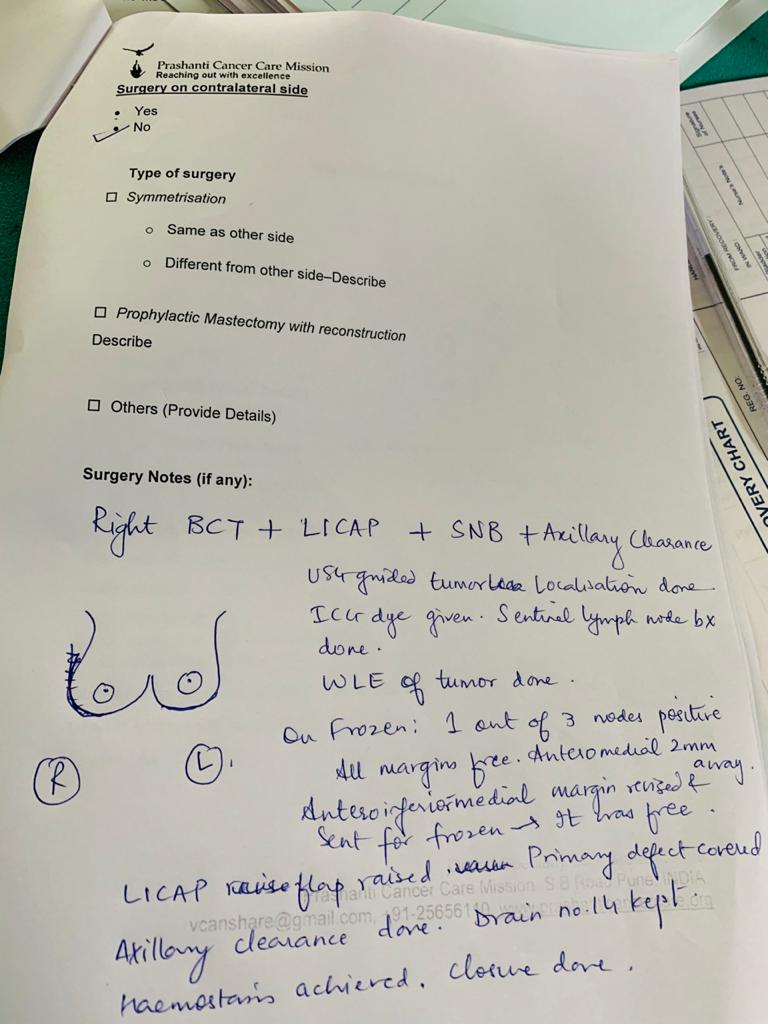 Prashanti Cancer Care Mission
Reaching out with excellence
Surgery on contralateral side
Yes
No
Type of surgery
Symmetrisation
Same as other side
Different from other side–Describe
Prophylactic Mastectomy with reconstruction
Describe
Others (Provide Details)
Surgery Notes (if any):
Right BCT + LICAP + SNB + Axillary Clearance
USG guided tumor Localisation done
ICG dye given. Sentinel lymph node bx
done.
WLE of tumor done.
On Frozen: 1 out of 3 nodes positive
All margins free. Anteromedial 2mm
away.
Anteroinferiormedial margin revised &
Sent for frozen → It was free.
R
L.
LICAP flap raised Primary defect covered
Prashanti Cancer Care Mission S B Road Pune, INDIA
vcanshare@gmail.com, +91-25656110
Axillary clearance done. Drain no. 14 kept
Haemostasis achieved. Closure done.
Signature
of Nurses
Nurse's Note's
FROM RECOVERY:
IN WARD:
REG. NO:
OVERY CHART